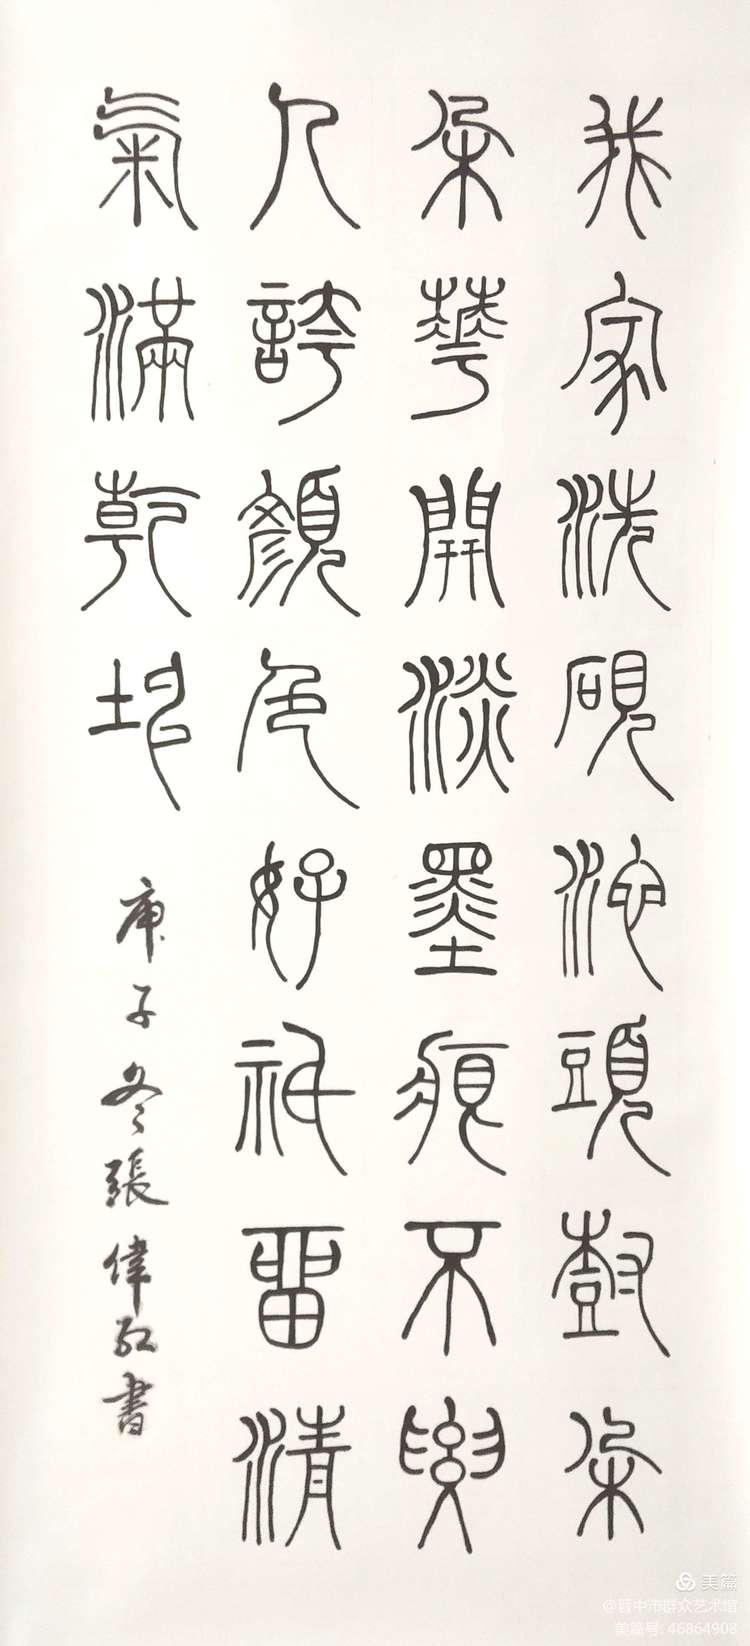 我家洗硯池頭樹朵
朵華開淡墨痕不要
人誇顏色好祇留清
氣滿乾坤
庚子冬張偉紅書
美篇
@晋中市群众艺术馆
美篇号: 46864908